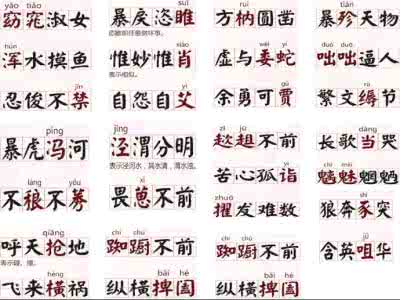 yǎo tiǎo
窈窕淑女
hún
浑水摸鱼
jīn
忍俊不禁
suī
暴戾恣睢
xiào
惟妙惟肖
表示相似。
yì
自怨自艾
ruì
方枘圆凿
wēi yí
虚与委蛇
gǔ
余勇可贾
tiǎn
暴殄天物
duō
咄咄逼人
rù
繁文缛节
píng
暴虎冯河
láng yǒu
不稂不莠
qiāng
呼天抢地
表示碰、撞。
hèng
飞来横祸
jīng
泾渭分明
表示泾河水，其水清，渭水浊。
xǐ
畏葸不前
chí chú
踟蹰不前
bǎi hé
纵横捭阖
zī jū
趑趄不前
yì
苦心孤诣
zhuó
擢发难数
chí chú
踟蹰不前
bǎi hé
纵横捭阖
dàng
长歌当哭
chī mèi
魑魅魍魉
shǐ
狼奔豕突
jǔ
含英咀华